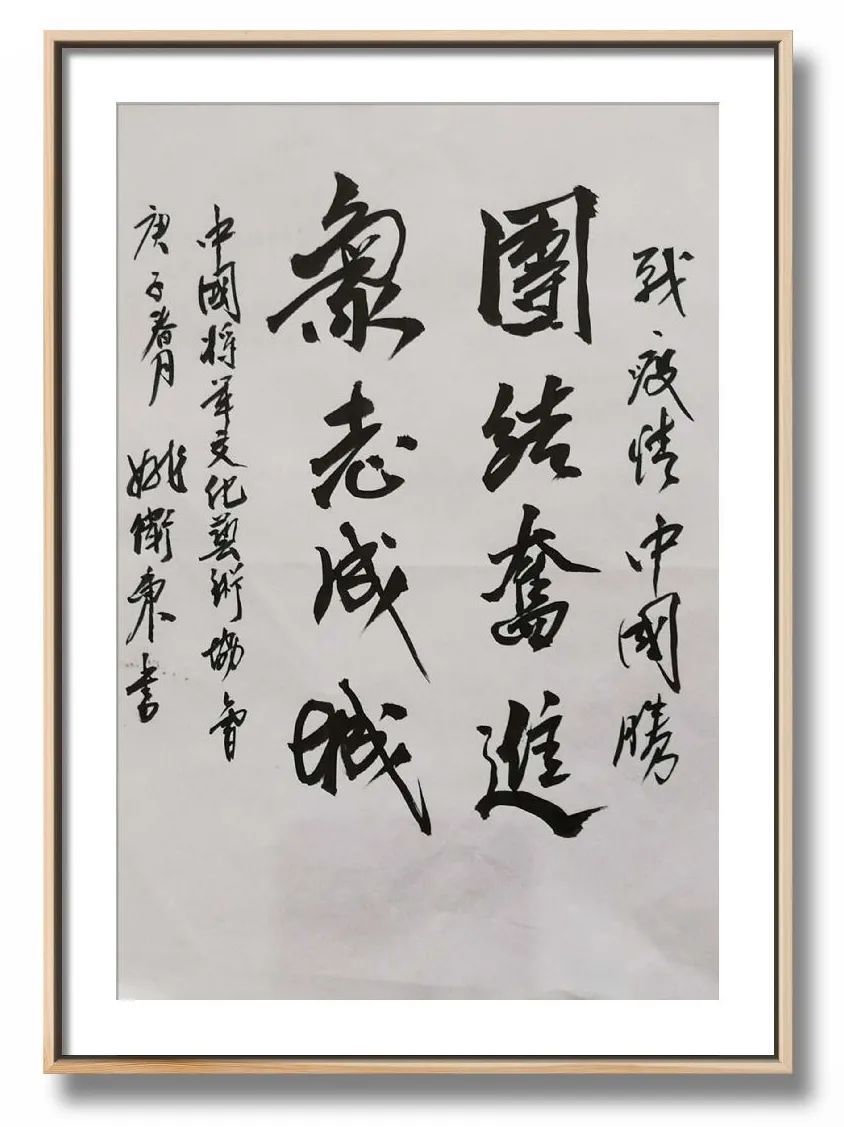 战疫情中國勝
團結奮進
衆志成城
中國将军文化藝術協會
庚子春月姚衛東書